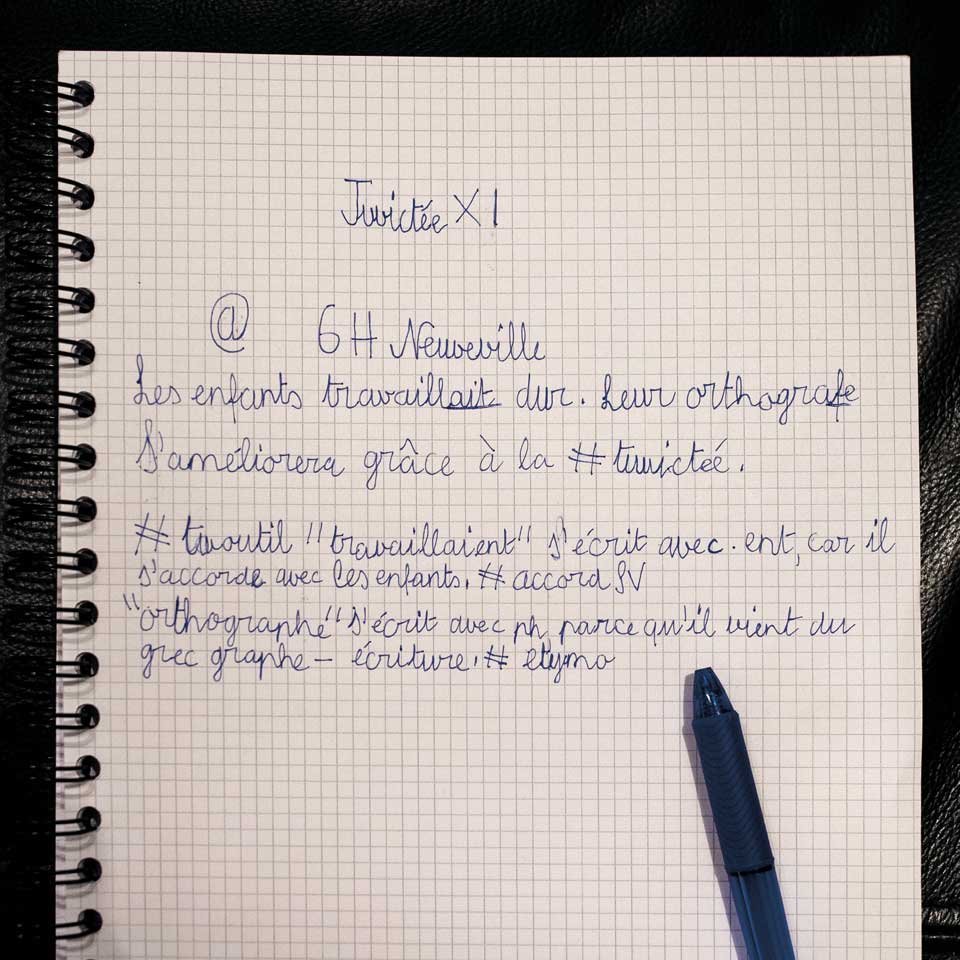 Twictée X1
@ 6H Neuveville
Les enfants travaillait dur. Leur orthografe
S'améliorera grâce à la #twictée.
# twoutil "travaillaient" s'écrit avec.ent, car il
s'accorde avec les enfants. # accord SV
"orthographe" s'écrit avec ph parce qu'il vient du
grec graphe - écriture. # etymo